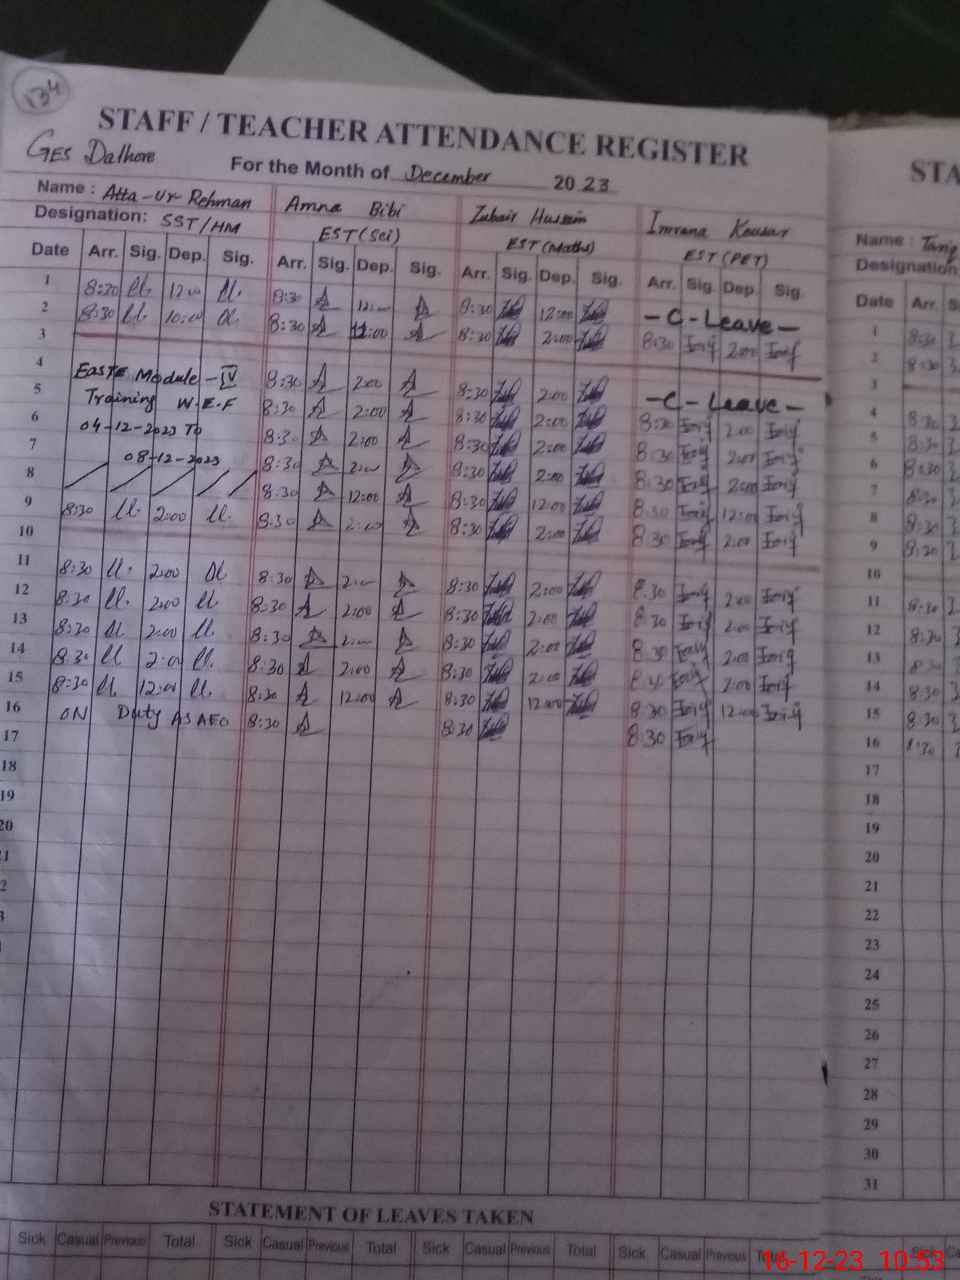 134
STAFF / TEACHER ATTENDANCE REGISTER
GES Dalhore
For the Month of December 20 23
Name : Atta-Ur-Rehman Amna Bibi Zubair Hussain Imrana Kousar
Designation: SST/HM EST(Sci) EST(Maths) EST(PET)
Date Arr. Sig. Dep. Sig. Arr. Sig. Dep. Sig. Arr. Sig. Dep. Sig. Arr. Sig. Dep. Sig.
1 8:20 12:00 8:30 12:00 8:30 12:00 -C-Leave-
2 8:30 10:00 8:30 12:00 8:30 2:00 8:30 2:00
3
4 EASTE Module-IV 8:30 2:00 8:30 2:00 -C-Leave-
5 Training W.E.F 8:30 2:00 8:30 2:00 8:30 2:00
6 04-12-2023 To 8:30 2:00 8:30 2:00 8:30 2:00
7 08-12-2023 8:30 2:00 8:30 2:00 8:30 2:00
8 8:30 12:00 8:30 12:00 8:30 12:00
9 8:30 2:00 8:30 2:00 8:30 2:00 8:30 2:00
10
11 8:30 2:00 8:30 2:00 8:30 2:00 8:30 2:00
12 8:30 2:00 8:30 2:00 8:30 2:00 8:30 2:00
13 8:30 2:00 8:30 2:00 8:30 2:00 8:30 2:00
14 8:30 2:00 8:30 2:00 8:30 2:00 8:30 2:00
15 8:30 12:00 8:30 12:00 8:30 12:00 8:30 12:00
16 ON Duty AS AEO 8:30 8:30 8:30
17
18
19
20
21
2
3
STATEMENT OF LEAVES TAKEN
Sick Casual Previous Total Sick Casual Previous Total Sick Casual Previous Total Sick Casual Previous Total
STA
Name :
Designation
Date Arr. S
1 8:30
2 8:30
3
4 8:30
5 8:30
6 8:30
7 8:30
8 8:30
9 8:30
10
11 8:30
12 8:30
13 8:30
14 8:30
15 8:30
16 8:30
17
18
19
20
21
22
23
24
25
26
27
28
29
30
31
Sick Ca
16-12-23 10:53